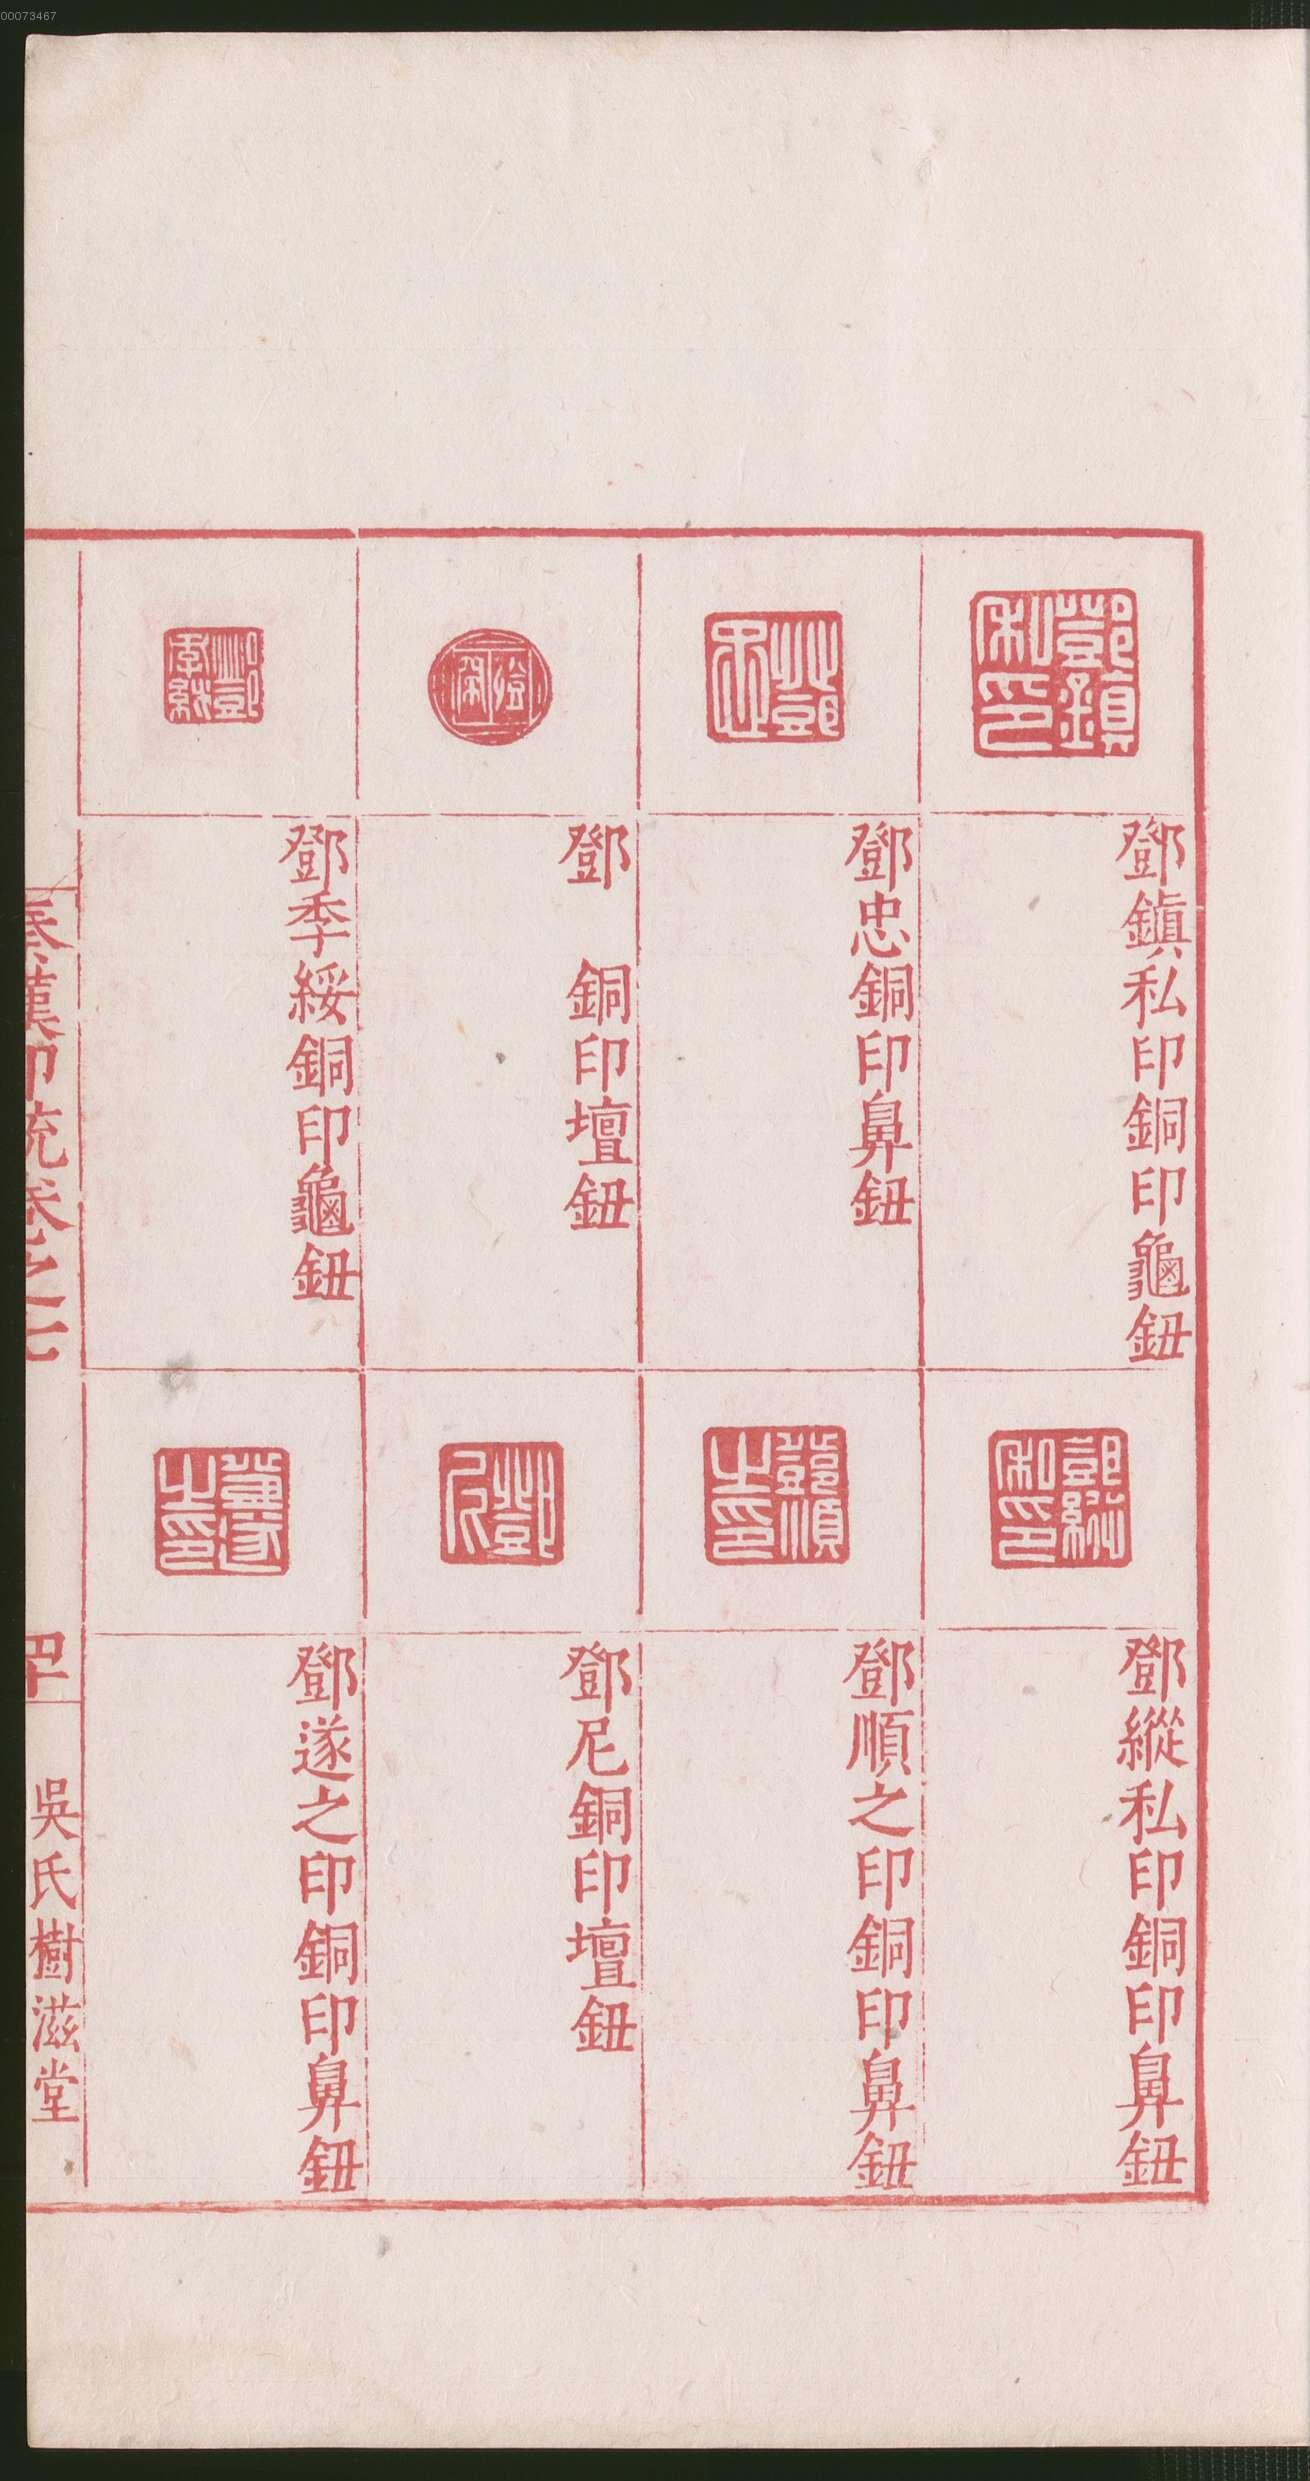 00073467
鄧鎮私印銅印龜鈕
鄧忠銅印鼻鈕
鄧　銅印壇鈕
鄧季綏銅印龜鈕
鄧縱私印銅印鼻鈕
鄧順之印銅印鼻鈕
鄧尼銅印壇鈕
鄧遂之印銅印鼻鈕
秦漢印統卷之七
吳氏樹滋堂